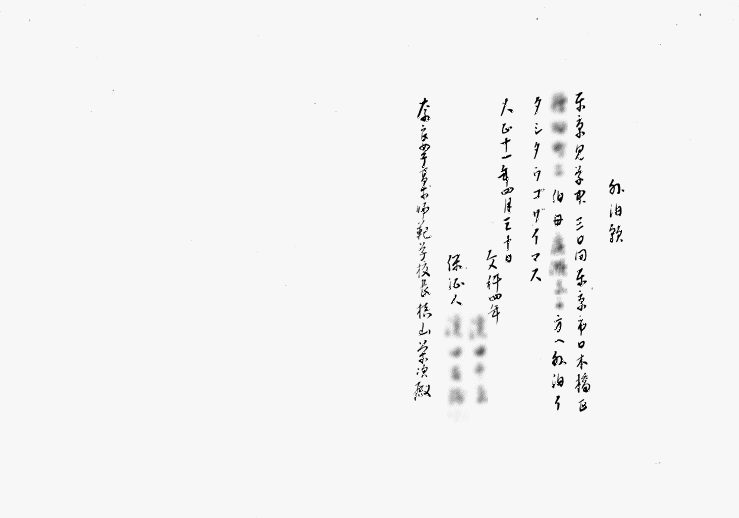 外泊願
東京見学中三日間東京市日本橋区
伯母 方へ外泊イ
タシタウゴザイマス
大正十一年四月三十日
文科四年
保証人
奈良女子高等師範学校長槙山栄次殿